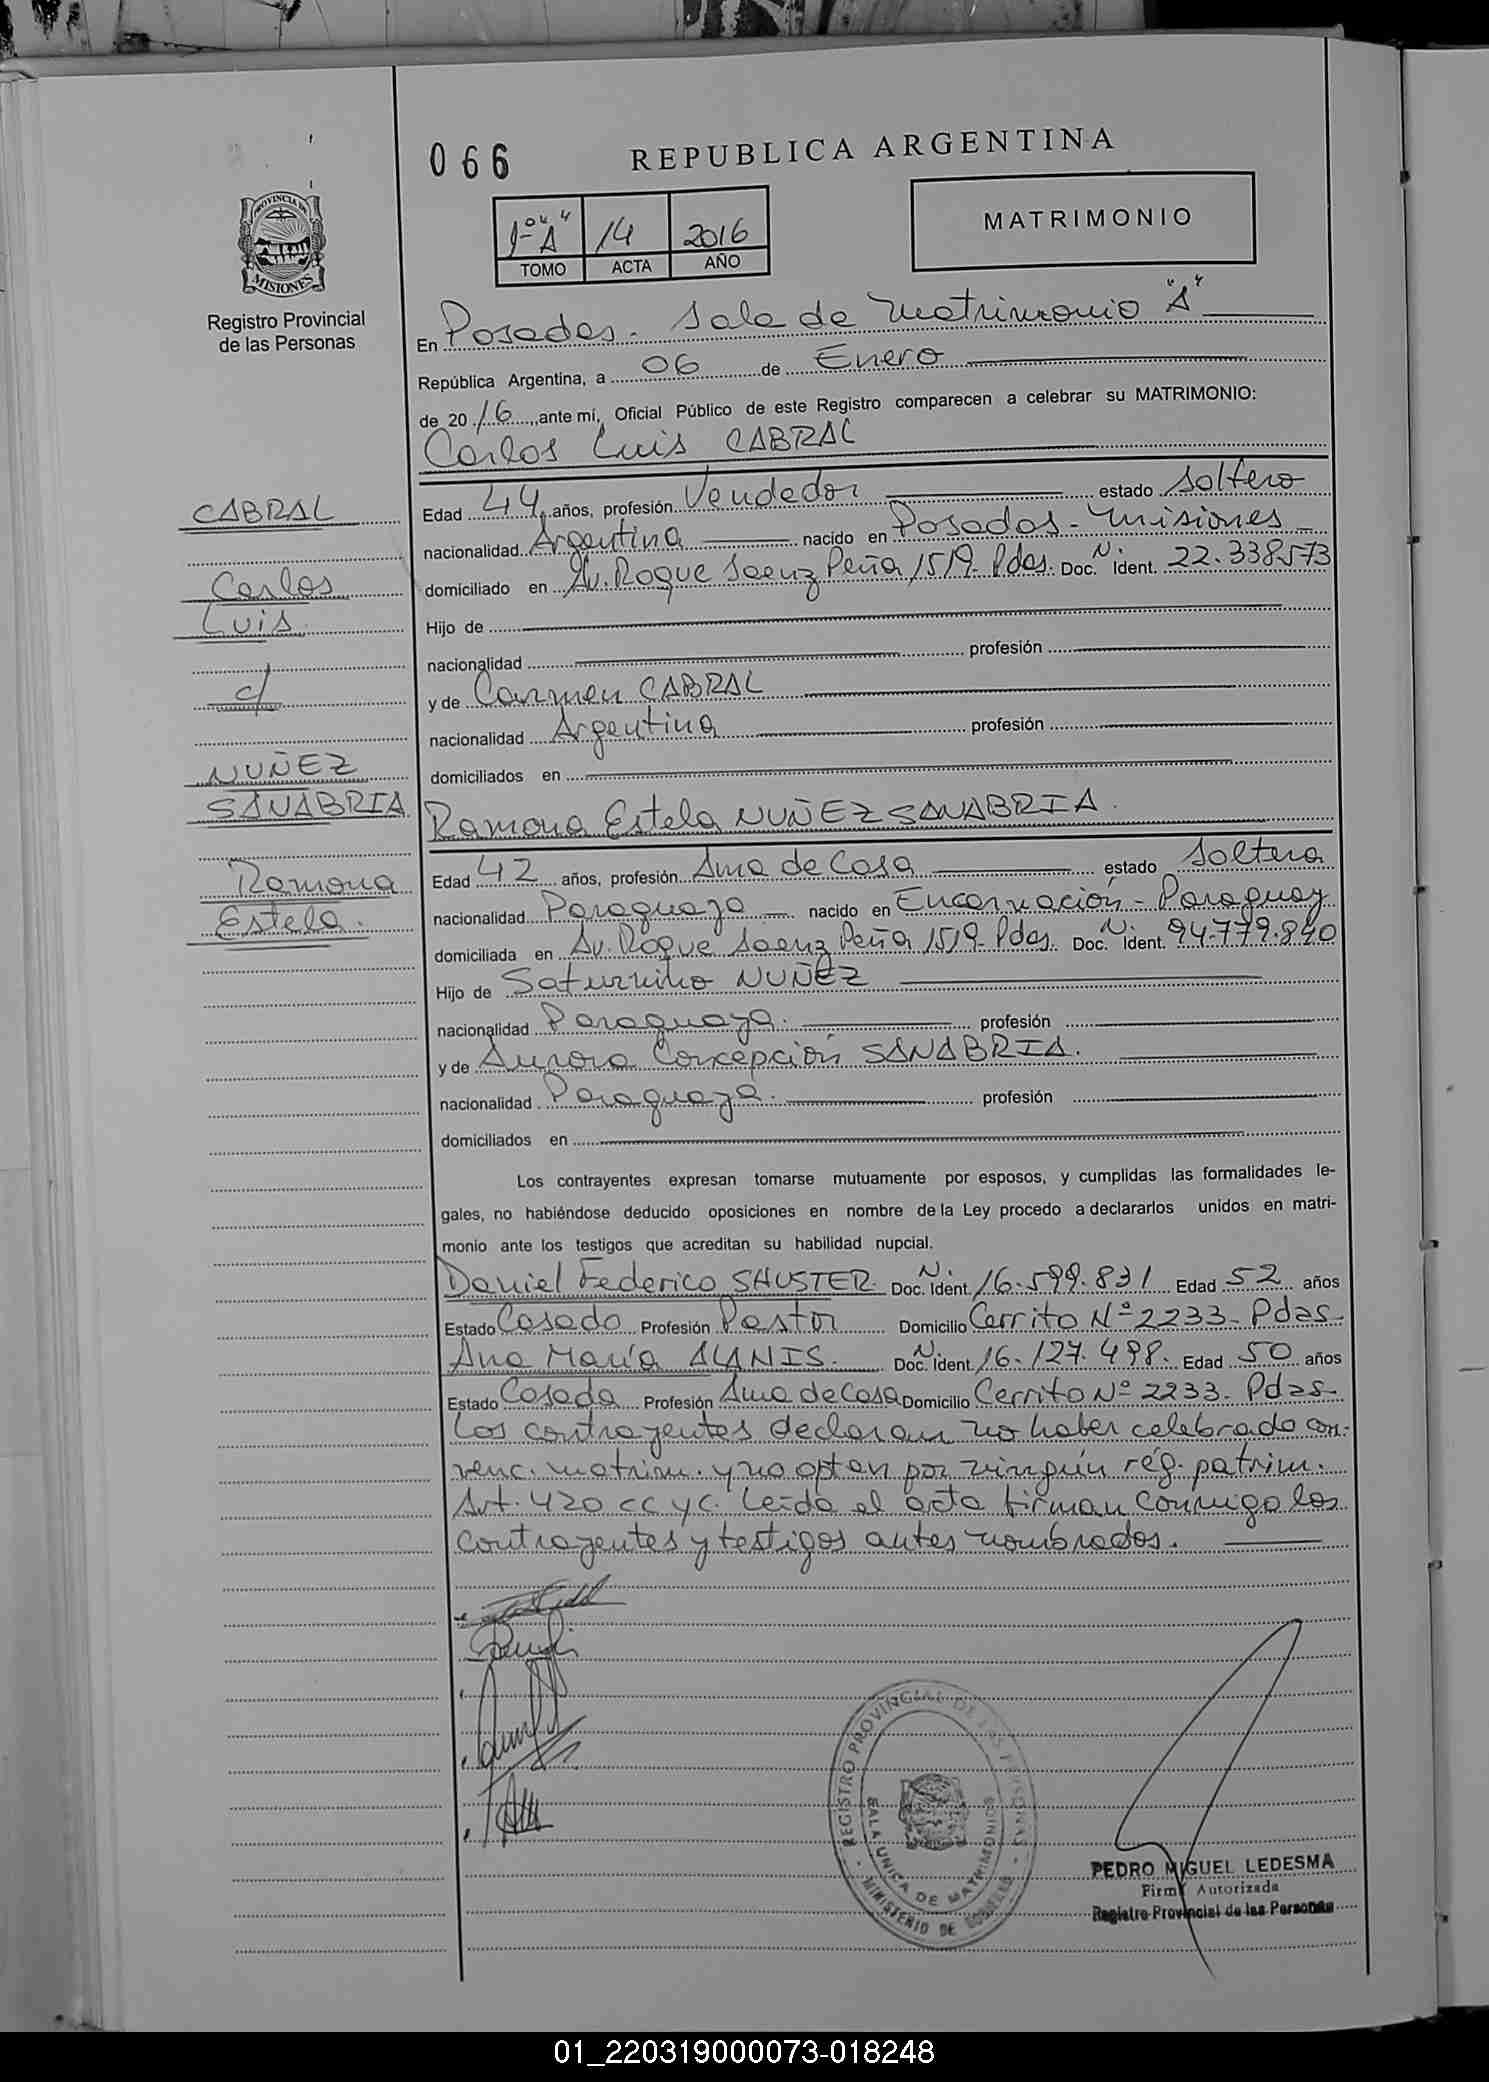 066
REPUBLICA ARGENTINA
1º "A" 14 2016
TOMO ACTA AÑO
MATRIMONIO
PROVINCIA DE
MISIONES
Registro Provincial
de las Personas
En Posadas - Sala de Matrimonio "A"
República Argentina, a 06 de Enero
de 2016, ante mí, Oficial Público de este Registro comparecen a celebrar su MATRIMONIO:
Carlos Luis CABRAL
Edad 44 años, profesión Vendedor estado Soltero
nacionalidad Argentina nacido en Posadas - Misiones
domiciliado en Av. Roque Saenz Peña 1519- Pdas. Doc. N. Ident. 22.338.573
Hijo de
nacionalidad profesión
y de Carmen CABRAL
nacionalidad Argentina profesión
domiciliados en
CABRAL
Carlos
Luis
c/
NUÑEZ
SANABRIA
Ramona
Estela.
Ramona Estela NUÑEZ SANABRIA.
Edad 42 años, profesión Ama de Casa estado Soltera
nacionalidad Paraguaya nacido en Encarnación - Paraguay
domiciliada en Av. Roque Saenz Peña 1519- Pdas. Doc. N. Ident. 94.779.840
Hijo de Saturnino NUÑEZ
nacionalidad Paraguaya. profesión
y de Aurora Concepción SANABRIA.
nacionalidad Paraguaya. profesión
domiciliados en
Los contrayentes expresan tomarse mutuamente por esposos, y cumplidas las formalidades le-
gales, no habiéndose deducido oposiciones en nombre de la Ley procedo a declararlos unidos en matri-
monio ante los testigos que acreditan su habilidad nupcial.
Daniel Federico SHUSTER. Doc. N. Ident. 16.599.831 Edad 52 años
Estado Casado Profesión Pastor Domicilio Cerrito Nº 2233- Pdas-
Ana María ALANIS. Doc. N. Ident. 16.127.498. Edad 50 años
Estado Casada Profesión Ama de Casa Domicilio Cerrito Nº 2233- Pdas-
Los contrayentes declaran no haber celebrado con-
venc. matrim. y no optan por ningún rég. patrim.
Art. 420 CC y C. Leída el acta firman conmigo los
contrayentes y testigos antes nombrados.
REGISTRO PROVINCIAL DE LAS PERSONAS
SALA UNICA DE MATRIMONIOS
MINISTERIO DE GOBIERNO
PEDRO MIGUEL LEDESMA
Firma Autorizada
Registro Provincial de las Personas
01_220319000073-018248